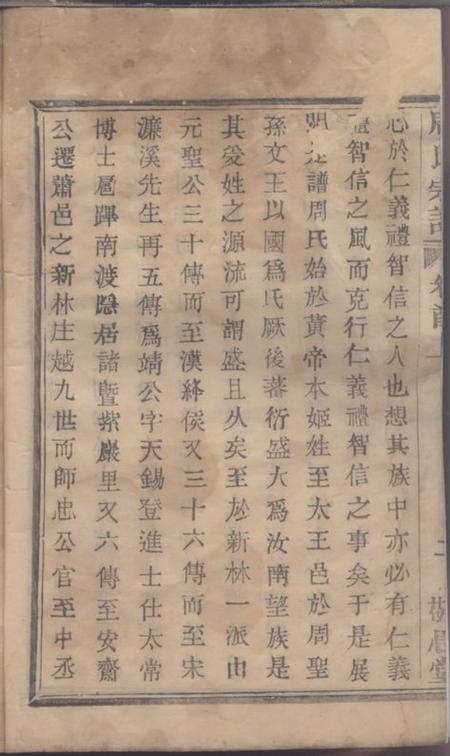 周氏宗譜 卷首 二
心於仁義禮智信之人也想其族中亦必有仁義
禮智信之風而克行仁義禮智信之事矣于是展
明是譜周氏始於黃帝本姬姓至太王邑於周聖
孫文王以國爲氏厥後蕃衍盛大爲汝南望族是
其受姓之源流可謂盛且久矣至於新林一派由
元聖公三十傳而至漢絳侯又三十六傳而至宋
濂溪先生再五傳爲靖公字天錫登進士仕太常
博士扈蹕南渡隱居諸曁紫巖里又六傳至安齋
公遷蕭邑之新林庄越九世而師忠公官至中丞